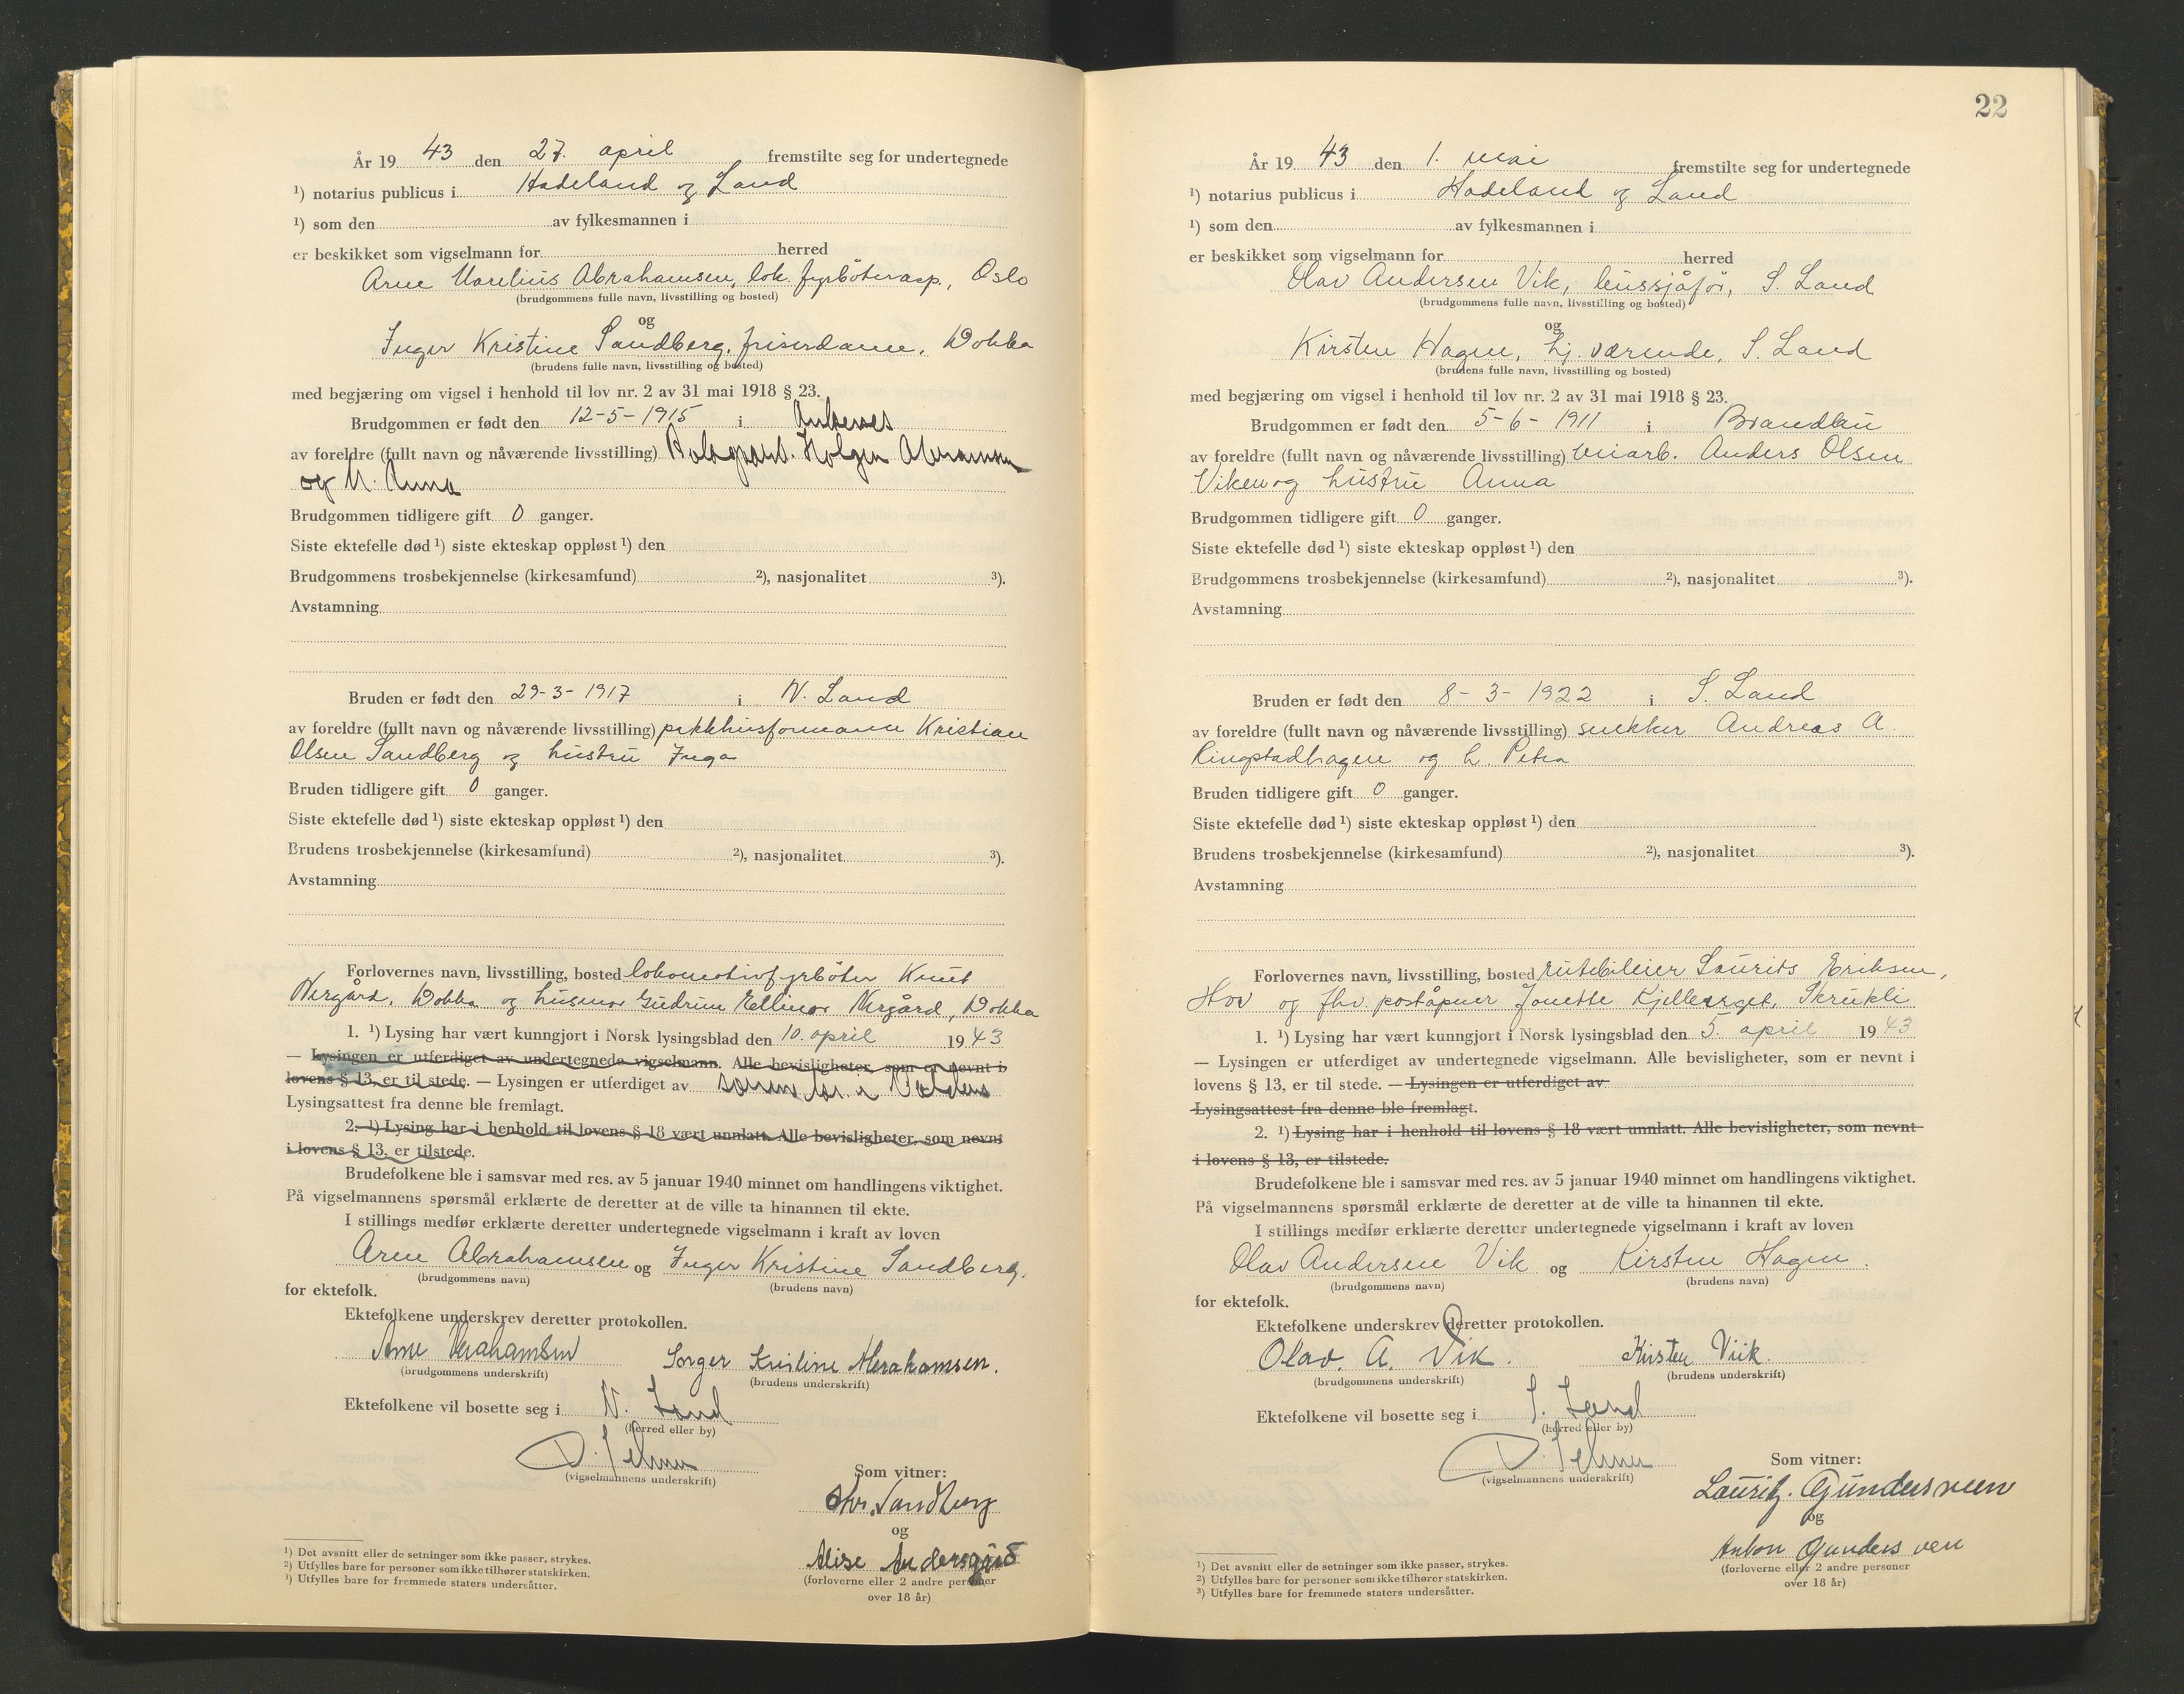 År 19 43 den 27. april fremstilte seg for undertegnede
¹) notarius publicus i Hadeland og Land
¹) som den av fylkesmannen i
er beskikket som vigselmann for herred
Arne Marelius Abrahamsen, lok. fyrböterasp., Oslo
(brudgommens fulle navn, livsstilling og bosted)
og
Inger Kristine Sandberg, friserdame, Dokka
(brudens fulle navn, livsstilling og bosted)
med begjæring om vigsel i henhold til lov nr. 2 av 31 mai 1918 § 23.
Brudgommen er født den 12-5-1915 i Ankenes
av foreldre (fullt navn og nåværende livsstilling) Holger Abrahamsen
og h. Anna
Brudgommen tidligere gift 0 ganger.
Siste ektefelle død ¹) siste ekteskap oppløst ¹) den
Brudgommens trosbekjennelse (kirkesamfund) ²), nasjonalitet ³).
Avstamning
Bruden er født den 29-3-1917 i N. Land
av foreldre (fullt navn og nåværende livsstilling) pukkhusformann Kristian
Olsen Sandberg og hustru Inga
Bruden tidligere gift 0 ganger.
Siste ektefelle død ¹) siste ekteskap oppløst ¹) den
Brudens trosbekjennelse (kirkesamfund) ²), nasjonalitet ³).
Avstamning
Forlovernes navn, livsstilling, bosted lokomotivfyrböter Knut
Nergård, Dokka og husmor Gudrun Ellinor Nergård, Dokka
1. ¹) Lysing har vært kunngjort i Norsk lysingsblad den 10. april 19 43
— Lysingen er utferdiget av undertegnede vigselmann. Alle bevisligheter, som er nevnt i
lovens § 13, er til stede. — Lysingen er utferdiget av sorenskr. i Valdres
Lysingsattest fra denne ble fremlagt.
2. ¹) Lysing har i henhold til lovens § 18 vært unnlatt. Alle bevisligheter, som nevnt
i lovens § 13, er tilstede.
Brudefolkene ble i samsvar med res. av 5 januar 1940 minnet om handlingens viktighet.
På vigselmannens spørsmål erklærte de deretter at de ville ta hinannen til ekte.
I stillings medfør erklærte deretter undertegnede vigselmann i kraft av loven
Arne Abrahamsen og Inger Kristine Sandberg.
(brudgommens navn) (brudens navn)
for ektefolk.
Ektefolkene underskrev deretter protokollen.
Arne Abrahamsen Inger Kristine Abrahamsen.
(brudgommens underskrift) (brudens underskrift)
Ektefolkene vil bosette seg i N. Land
(herred eller by)
(vigselmannens underskrift)
Som vitner:
Chr. Sandberg
og
Alise Andersgård
(forloverne eller 2 andre personer
over 18 år)
¹) Det avsnitt eller de setninger som ikke passer, strykes.
²) Utfylles bare for personer som ikke tilhører statskirken.
³) Utfylles bare for fremmede staters undersåtter.
22
År 19 43 den 1. mai fremstilte seg for undertegnede
¹) notarius publicus i Hadeland og Land
¹) som den av fylkesmannen i
er beskikket som vigselmann for herred
Olav Andersen Vik, bussjåför, S. Land
(brudgommens fulle navn, livsstilling og bosted)
og
Kirsten Hagen, hj. værende, S. Land
(brudens fulle navn, livsstilling og bosted)
med begjæring om vigsel i henhold til lov nr. 2 av 31 mai 1918 § 23.
Brudgommen er født den 5-6-1911 i Brandbu
av foreldre (fullt navn og nåværende livsstilling) veiarb. Anders Olsen
Viken og hustru Anna
Brudgommen tidligere gift 0 ganger.
Siste ektefelle død ¹) siste ekteskap oppløst ¹) den
Brudgommens trosbekjennelse (kirkesamfund) ²), nasjonalitet ³).
Avstamning
Bruden er født den 8-3-1922 i S. Land
av foreldre (fullt navn og nåværende livsstilling) snekker Andreas A.
Ringstadhagen og h. Petra
Bruden tidligere gift 0 ganger.
Siste ektefelle død ¹) siste ekteskap oppløst ¹) den
Brudens trosbekjennelse (kirkesamfund) ²), nasjonalitet ³).
Avstamning
Forlovernes navn, livsstilling, bosted rutebileier Laurits Eriksen,
Hov og fhv. poståpner Jonette Kjelleberget, Skrukli
1. ¹) Lysing har vært kunngjort i Norsk lysingsblad den 5. april 19 43
— Lysingen er utferdiget av undertegnede vigselmann. Alle bevisligheter, som er nevnt i
lovens § 13, er til stede. — Lysingen er utferdiget av
Lysingsattest fra denne ble fremlagt.
2. ¹) Lysing har i henhold til lovens § 18 vært unnlatt. Alle bevisligheter, som nevnt
i lovens § 13, er tilstede.
Brudefolkene ble i samsvar med res. av 5 januar 1940 minnet om handlingens viktighet.
På vigselmannens spørsmål erklærte de deretter at de ville ta hinannen til ekte.
I stillings medfør erklærte deretter undertegnede vigselmann i kraft av loven
Olav Andersen Vik og Kirsten Hagen.
(brudgommens navn) (brudens navn)
for ektefolk.
Ektefolkene underskrev deretter protokollen.
Olav. A. Vik. Kirsten Viik.
(brudgommens underskrift) (brudens underskrift)
Ektefolkene vil bosette seg i S. Land
(herred eller by)
(vigselmannens underskrift)
Som vitner:
Lauritz. Gundersveen
og
Anton Gundersven
(forloverne eller 2 andre personer
over 18 år)
¹) Det avsnitt eller de setninger som ikke passer, strykes.
²) Utfylles bare for personer som ikke tilhører statskirken.
³) Utfylles bare for fremmede staters undersåtter.